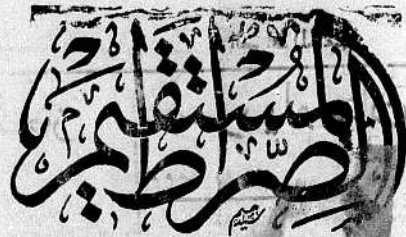 الصِّراط المُستقیم